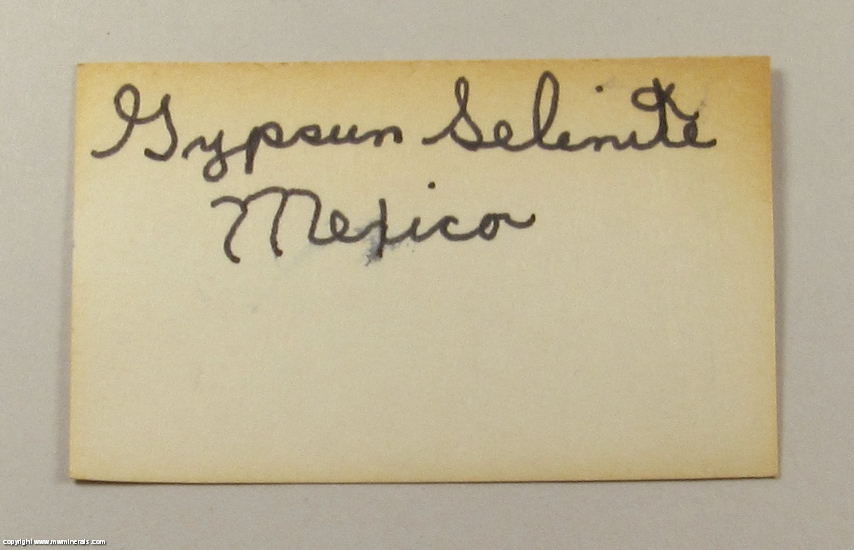 Gypsun Selinite
Mexico
copyright www.mwminerals.com